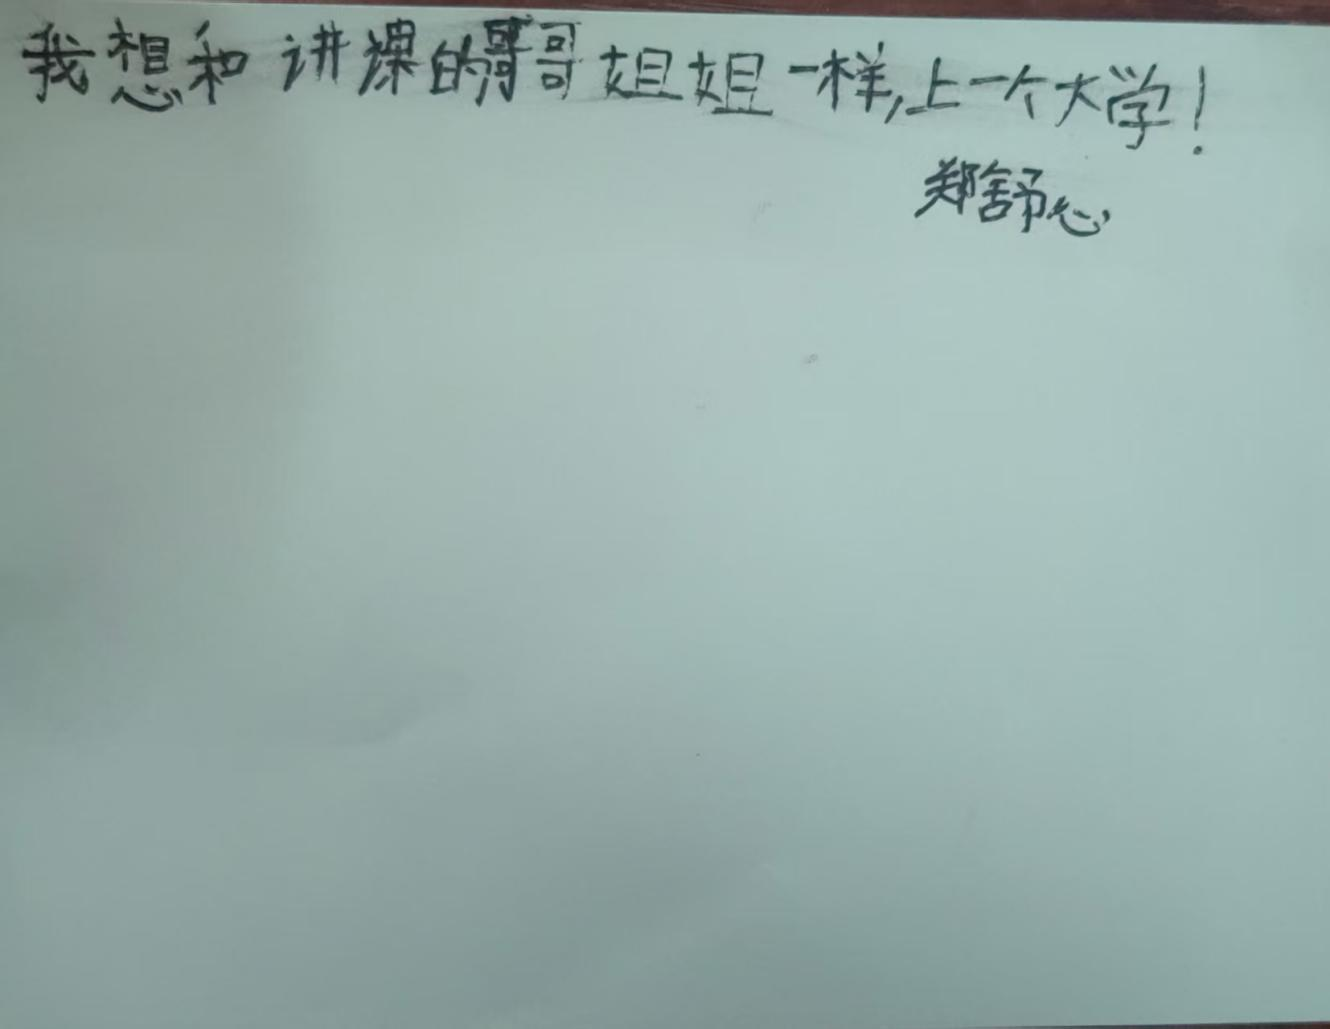 我想和讲课的哥哥姐姐一样,上一个大学!
郑舒心